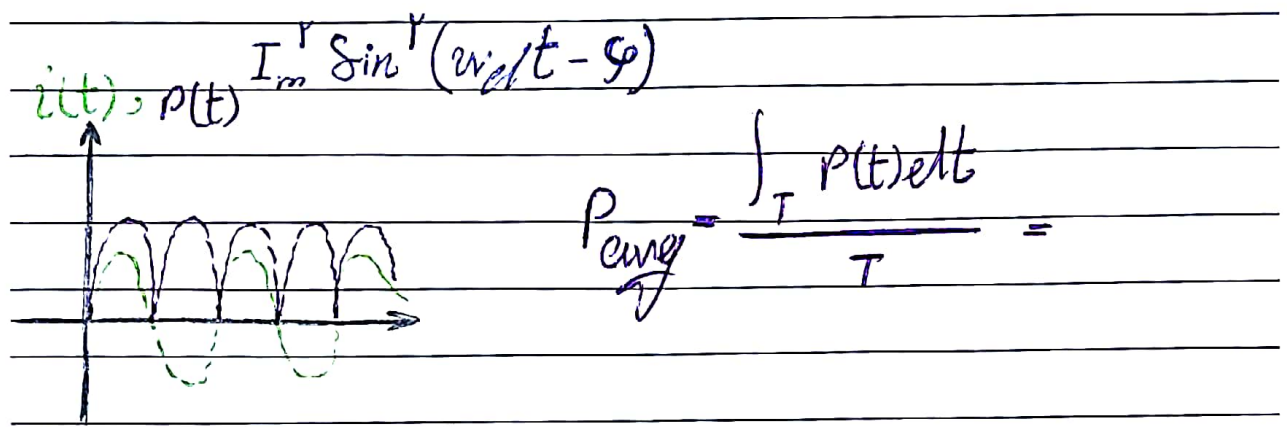 I_m^۲ Sin^۲ (ωt - φ)
i(t), P(t)
P_avg = ∫_T P(t)dt / T =